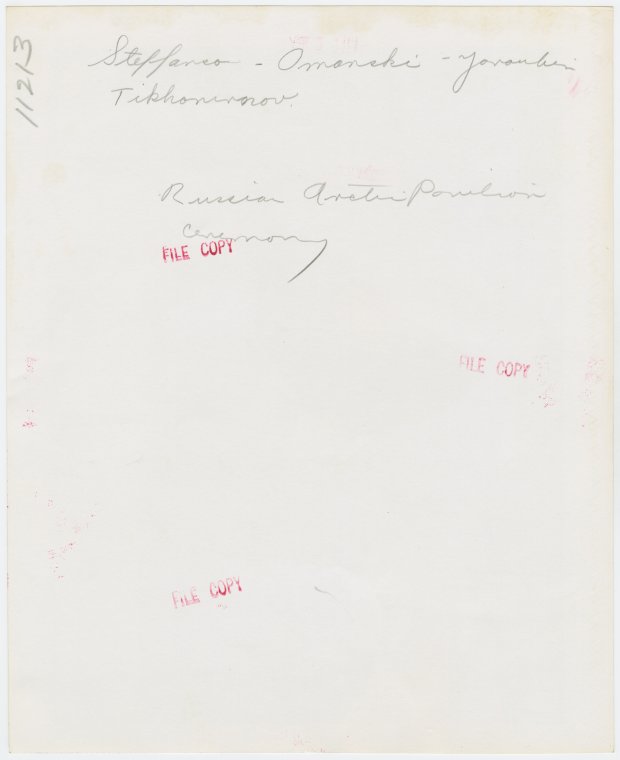 11213
Steffanson - Omanski -
Tikhonirorov.
Russian Arctic Pavilion
Ceremony
FILE COPY
FILE COPY
FILE COPY